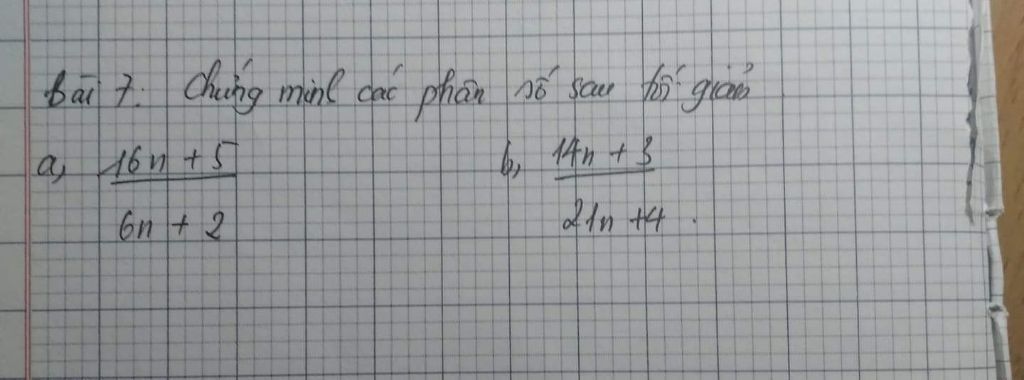 Bài 7: Chứng minh các phân số sau tối giản
a, 16n + 5 b, 14n + 3
6n + 2 21n + 4.